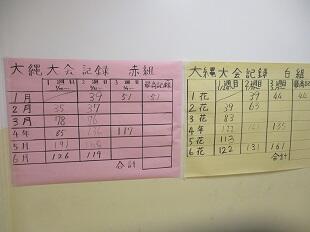 大縄大会記録 赤組
1週目 2週目 3週目 最高記録
1月 39 51 51
2月 35 37
3月 78 96
4年 85 117
5月
6月 126 119
合計
大縄大会記録 白組
1週目 2週目 3週目
1花 39 44 44
2花 39 63
3花 83
4年 135
5花 113
6花 122 131 161
合計